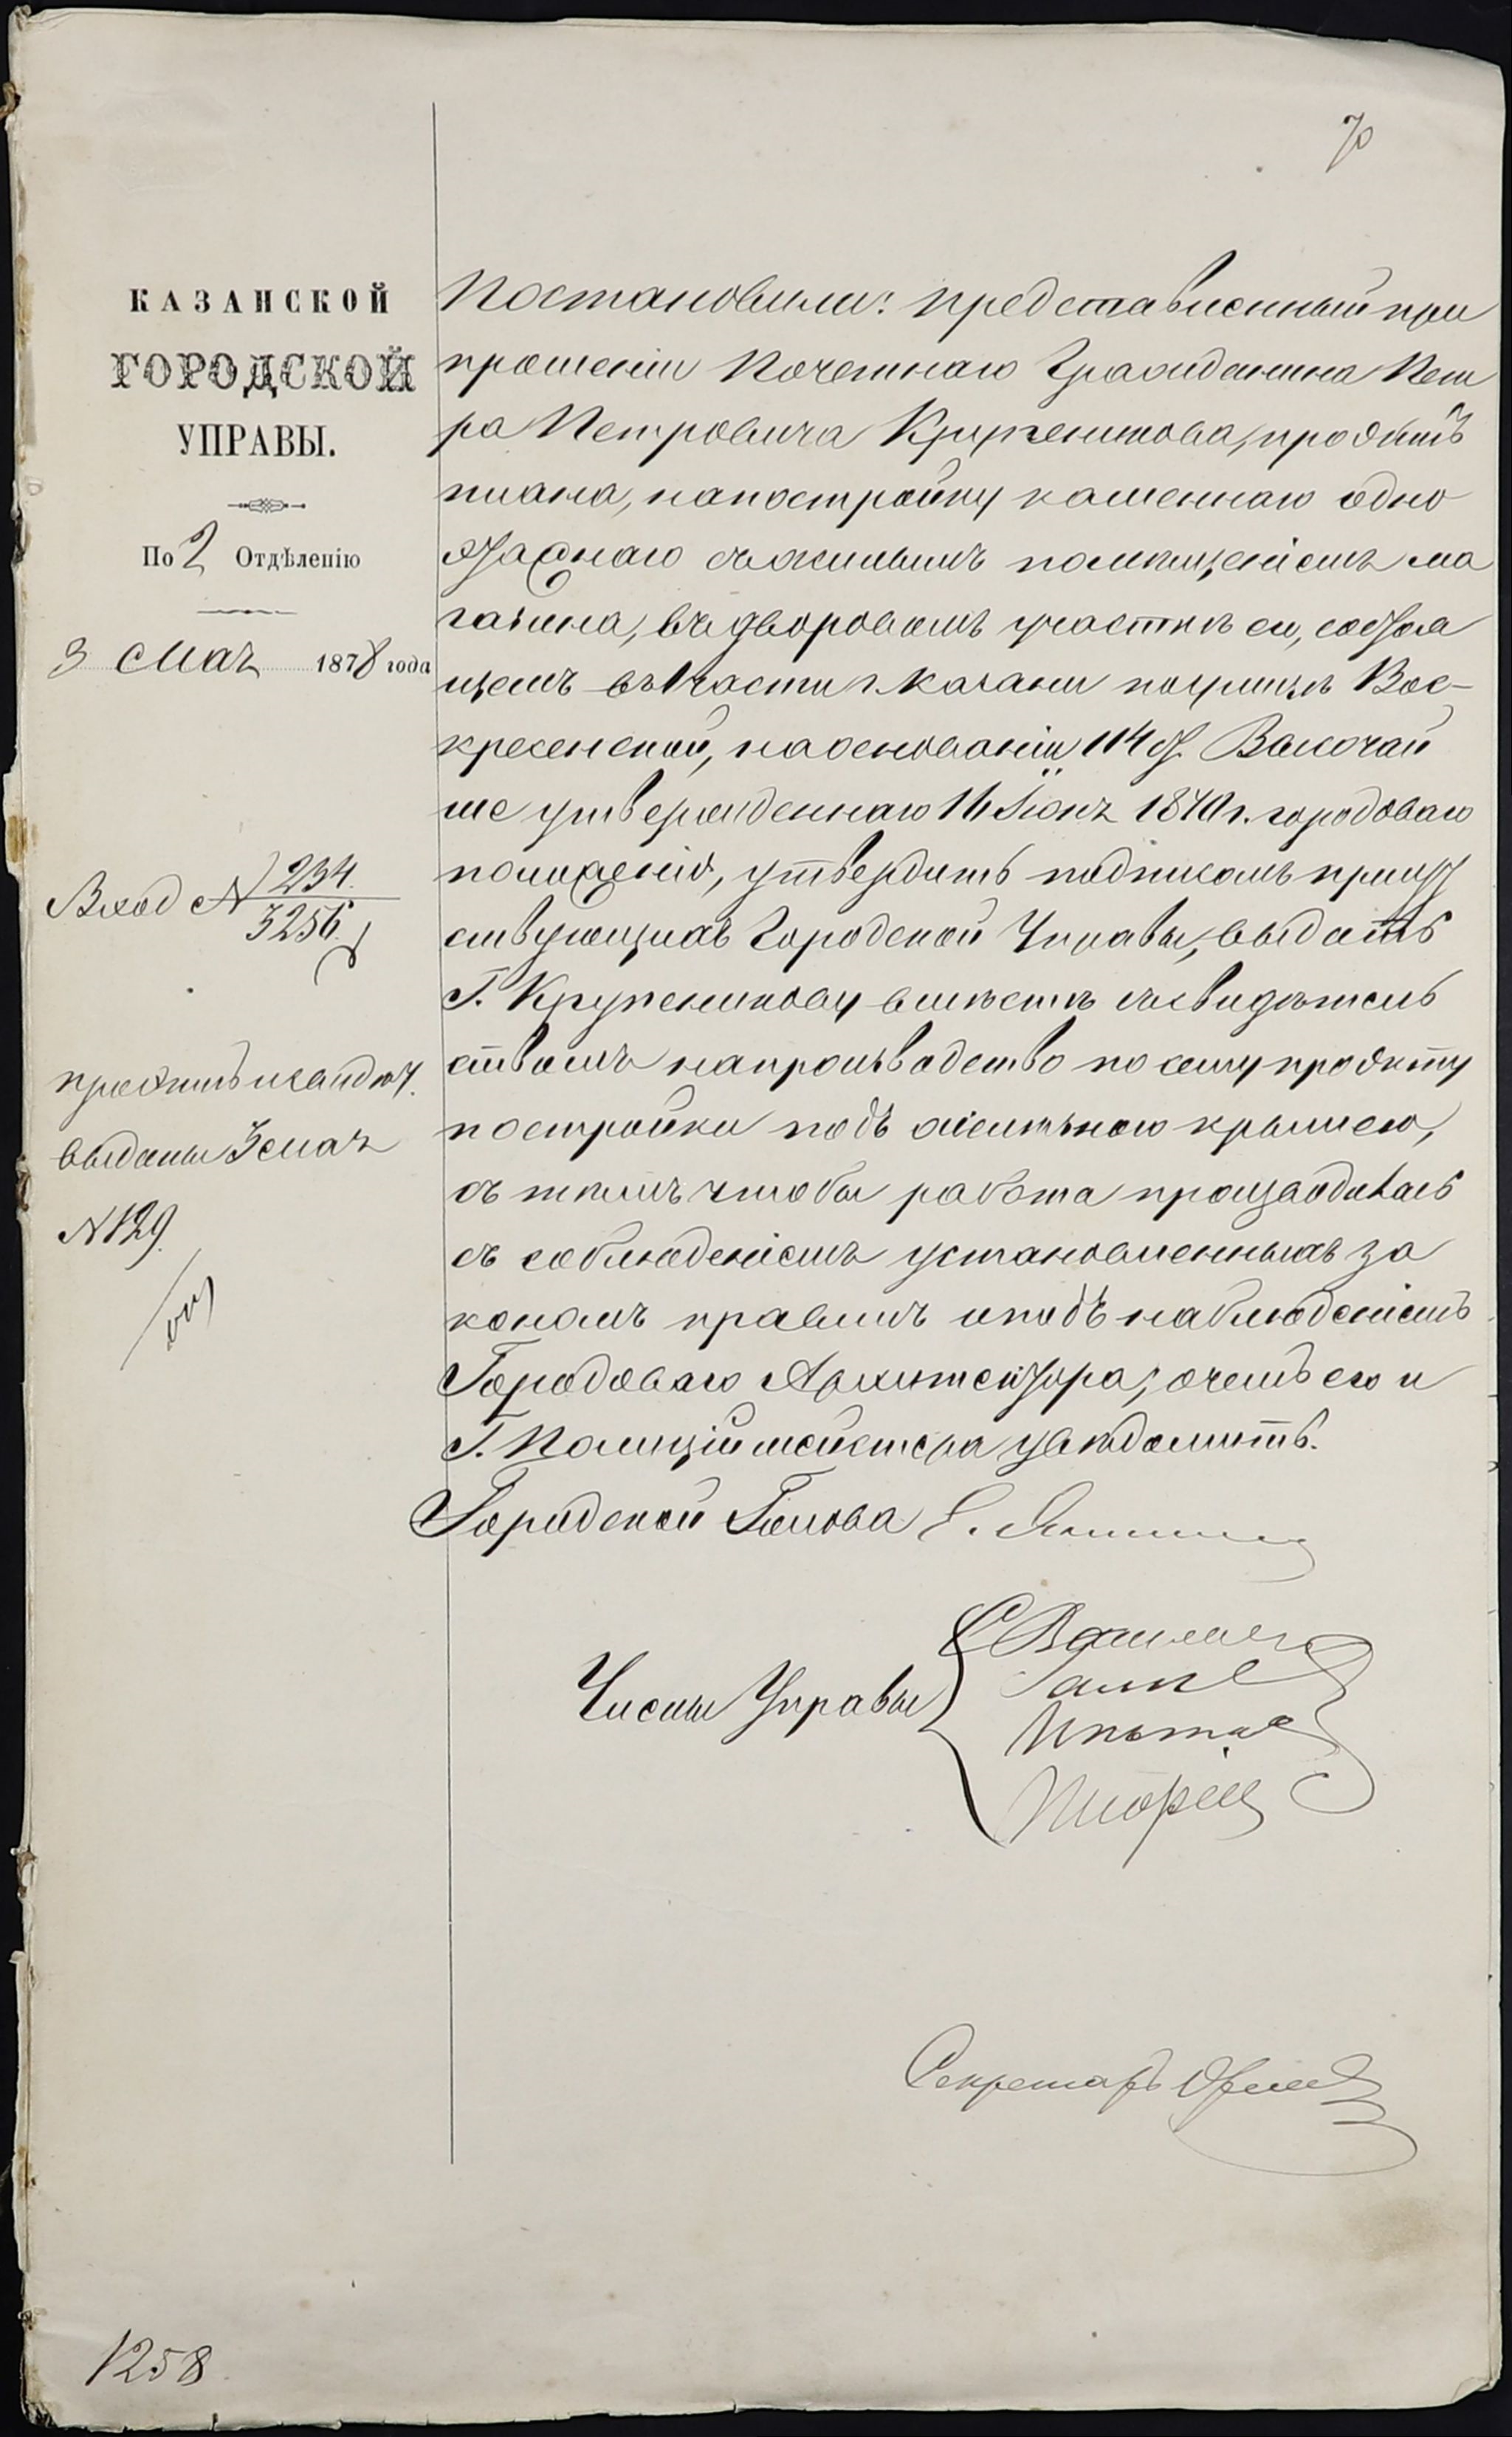 70
КАЗАНСКОЙ
ГОРОДСКОЙ
УПРАВЫ.
По 2 Отдѣленію
3 Мая 1878 года
Вход № 234.
3256
проэктъ и свид.
выданы 3 мая
№ 129.
Постановили: представленный при
прошеніи Почетнаго Гражданина Пет
ра Петровича Крупеникова, проэктъ
плана, на постройку каменнаго одно
этажнаго съ жилымъ помѣщеніемъ ма
газина, въ дворовомъ участкѣ ем, состоя
щемъ въ 1 части г. Казани по улицѣ Вос-
кресенской, на основаніи 114 ст. Высочай
ше утвержденнаго 16 Іюня 1870 г. городоваго
положенія, утвердить подписомъ присут
ствующихъ Городской Управы, выдать
Г. Крупеникову вмѣстѣ съ свидѣтель
ствомъ на производство по сему проэкту
постройки подъ желѣзною крышею,
съ тѣмъ чтобы работа производилась
съ соблюденіемъ установленныхъ за
кономъ правилъ и подъ наблюденіемъ
Городоваго Архитектора, о чемъ его и
Г. Полиціймейстера увѣдомить.
Городской Голова Е.
Члены Управы
Секретарь
1258